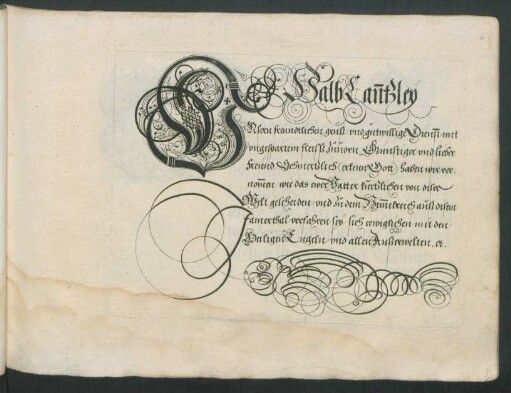 Halb Canntzley
Unsern freundtlichen grueß und guetwillige Dienst mit
ungespartem fleiß zuvorn, Grünstiger und lieber
freund Schmertzlich (erkent Gott) haben wir ver
nomen, wie das ewer Vatter kürtzlichen von diser
Welt gescheiden und zu dem Himelreich auß disem
Jamerthal verfahren sey, sich ewiglichen mit den
Heiligen Engeln und allen Außerwelten, etc.